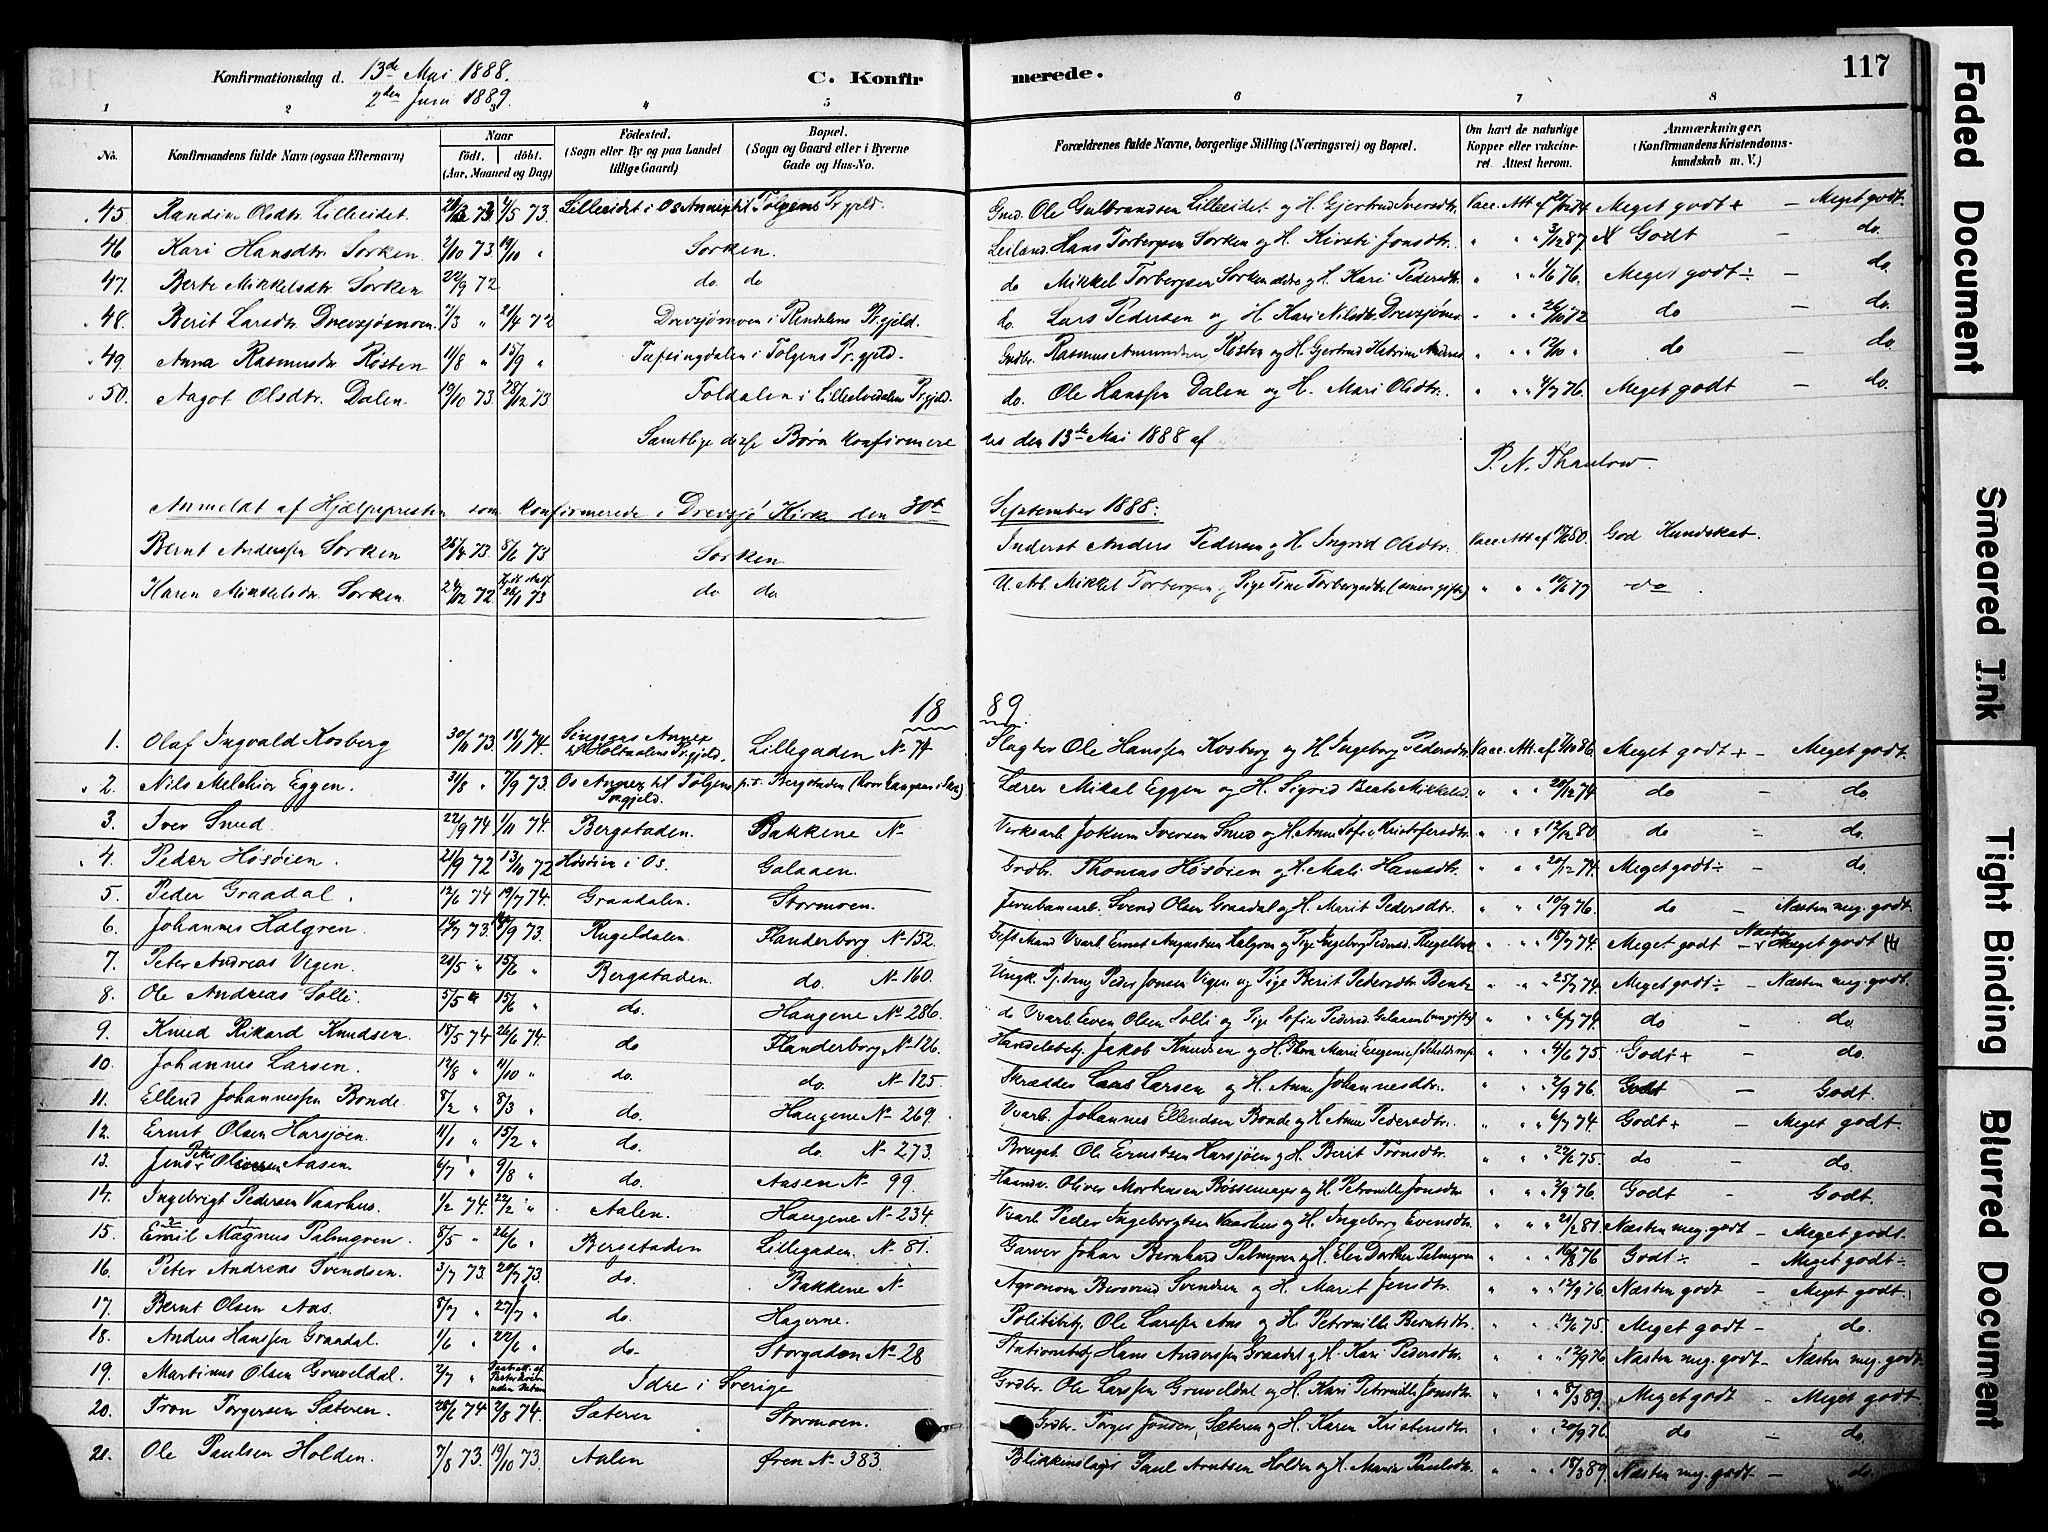 117
Konfirmationsdag d. 13de Mai 1888. C. Konfirmerede.
2den Juni 1889.
1 2 3 4 5 6 7 8
No. Konfirmandens fulde Navn (ogsaa Efternavn) Naar födt. döbt. (Aar, Maaned og Dag) Födested. (Sogn eller By og paa Landet tillige Gaard) Bopæl. (Sogn og Gaard eller i Byerne Gade og Hus-No. Forældrenes fulde Navne, borgerlige Stilling (Næringsvei) og Bopæl. Om havt de naturlige Kopper eller vakcineret. Attest herom. Anmærkninger. (Konfirmandens Kristendomskundskab m. V.)
45. Randine Olsdtr. Lilleeidet. 4/5 73 Lilleeidet i Os Annex til Tolgens Prgjeld. Gmd. Ole Gulbrandsen Lilleeidet og H. Gjertrud Iversdtr. Vacc. Att af 20/12 74 Meget godt + — Meget godt.
46 Kari Hansdtr Sorken 2/10 73. 19/10 " Sorken. Leilænd. Hans Torbergsen Sorken og H. Kirsti Jonsdtr. " " 3/12 87. Godt — do.
47. Berte Mikkelsdtr Sorken 22/9 72 do. do do Mikkel Torbergsen Sorken og H. Kari Pedersdtr. " " 1/6 76. Meget godt ÷ — do.
48. Berit Larsdtr Drevsjømoen 7/3 " 21/4 72 Drevsjømoen i Rendalens Prgjeld. do. Lars Pedersen og H. Kari Nilsdtr. Drevsjømo " " 26/10 72 do — do.
49. Anna Rasmusdtr Røsten 11/8 " 15/9 " Tufsingdalen i Tolgens Prgjeld. Grdbr. Rasmus Amundsen Røsten og H. Gjertrud Katrine " " 12/10 " do — do.
50. Aagot Olsdtr. Dalen 19/10 73. 28/12 73 Foldalen i Lilleelvedalens Prgjeld. do. Ole Hanssen Dalen og H. Mari Olsdtr. " " 4/7 76. Meget godt — do.
Samtlige disse Børn konfirmeredes den 13de Mai 1888 af
P. N. Thaulow.
Anmeldt af Hjælpepresten som konfirmerede i Drevsjø Kirke den 30te September 1888:
Bernt Anderssen Sorken 25/4 73 8/6 73 Sorken Inderst Anders Pedersen og H. Ingrid Olsdtr. Vacc. Att af 17/6 80. God Kundskab.
Karen Mikkelsdtr Sorken 72. 26/1 73 do do U. Arb. Mikkel Torbergsen, Pige Tine Torbergsdtr (senere gifte) " " 19/6 77 do
1889.
1. Olaf Ingvald Kosberg 30/11 73. 18/1 74. Singsaas Annex til Holtaalens Prgjeld. Lillegaden N. 77 Slagter Ole Hanssen Kosberg og H. Ingeborg Pedersdtr Vacc. Att. af 7/10 86. Meget godt + — Meget godt.
2. Nils Melchior Eggen. 31/8 " 7/9 73. Os Annex til Tolgens Prgjeld. p. t. Bergstaden Lærer Mikal Eggen og H. Sigrid Beate Mikkelsd. " " 20/12 74 do — do.
3. Iver Smed 22/9 74 1/11 74. Bergstaden. Bakkene N. Virksarb. Jokum Iversen Smed og H. Anne Sofie Kristofersdtr. " " 12/12 80 do — do.
4. Peder Høsøien. 21/9 72 13/10 72 Høsøien i Os. Galaaen. Grdbr. Thomas Høsøien og H. Mali Hansdtr. " " 20/12 74. Meget godt ÷ — do.
5. Peder Graadal. 12/6 74 19/7 74. Graadalen. Stormoen. Jernbanearb. Svend Olsen Graadal og H. Marit Pedersdtr. " " 10/9 76. do — Næsten meg. godt.
6. Johannes Halgren 73. /9 73. Rugeldalen. Flanderborg N. 152. Gift Mand Varb. Ernst Augustsen Halgren og Pige Ingeborg Pedersd. " " 15/7 74. Meget godt — Næsten Meget godt
7. Peter Andreas Vigen. 20/5 " 15/6 " Bergstaden do. N. 160. Ungk. Tj.dreng Peder Jonsen Vigen og Pige Berit Pedersdtr Bentz " " 25/7 74. Meget godt ÷ — Næsten meg. godt.
8. Ole Andreas Solli. 5/5 " 15/6 " do. Haugene N. 286. do Varb. Even Olsen Solli og Pige Sofie Pedersd. Galaaen " " 6/7 74. do — do.
9. Knud Rikard Knudsen. 18/5 74 26/6 74. do Flanderborg N. 126. Handelsbetj. Jakob Knudsen og H. Thora Marie Eugenie " " 4/6 75. Godt + — do.
10. Johannes Larsen. 12/8 " 11/10 " do. do. N. 125. Skrædder Lars Larsen og H. Anne Johannesdtr. " " 2/9 76. Godt — Godt.
11. Ellend Johannessen Bonde. 8/2 " 8/3 " do. Haugene N. 269. Varb. Johannes Ellendsen Bonde og H. Anne Pedersdtr. " " 6/7 74. Godt + — Meget godt.
12. Ernst Olsen Harsjøen. 11/1 " 15/2 " do. do. N. 273. Brugsb. Ole Ernstsen Harsjøen og H. Berit Tronsdtr. " " 22/6 75. do — do.
13. Jens Peter Olivesen Aasen. 6/7 " 9/8 " do. Aasen N. 99. Haandv. Oliver Mortensen Bøssemager og H. Petronille Jonsdtr " " 2/9 76. Godt — Godt.
14. Ingebrigt Pedersen Vaarhus. 1/2 74. 22/2 " Aalen. Haugene N. 234. Varb. Peder Ingebrigtsen Vaarhus og H. Ingeborg Evensdtr. " " 21/2 81. Næsten meg. godt — Meget godt.
15. Emil Magnus Palmgren. 8/5 " 26/6 " Bergstaden Lillegaden. N. 81. Garver Johan Bernhard Palmgren og H. Elen Dorthea Palmgren " " 16/8 76 Godt ÷ — Meget godt ÷
16. Peter Andreas Svendsen. 3/7 73. 20/7 73. do. Bakkene N. Agronom Svendsen og H. Marit Jensdtr. " " 12/9 76 Næsten godt — Meget godt.
17. Bernt Olsen Aas. 8/7 " 27/7 " do. Hagerne. Politibetj. Ole Larssen Aas og H. Petronille Berntsdtr. " " 12/6 75. Meget godt — do.
18. Anders Hanssen Graadal. 1/6 " 22/6 " do. Storgaden N. 28 Stationsbetj. Hans Anderssen Graadal og H. Kari Pedersdtr. " " 12/9 76 Næsten meg. godt — Næsten meg. godt.
19. Martinus Olsen Gruveldal. 2/7 " Idre i Sverige Grdbr. Ole Larssen Gruveldal og H. Kari Petronille Jonsdtr " " 8/3 89. Meget godt — Meget godt.
20. Tron Torgersen Sæteren. 28/6 74 2/8 74. Sæteren Stormoen. Grdbr. Torger Jonsen Sæteren og H. Karen Kristensdtr. " " 20/9 76. do — do.
21. Ole Paulsen Holden. 7/8 73. 19/10 73. Aalen Øren N. 383. Blikkenslager Paul Arntsen Holden og H. Maria Paulsdtr. " " 15/3 89. Næsten meg. godt — do.
Faded Document
Smeared Ink
Tight Binding
Blurred Document